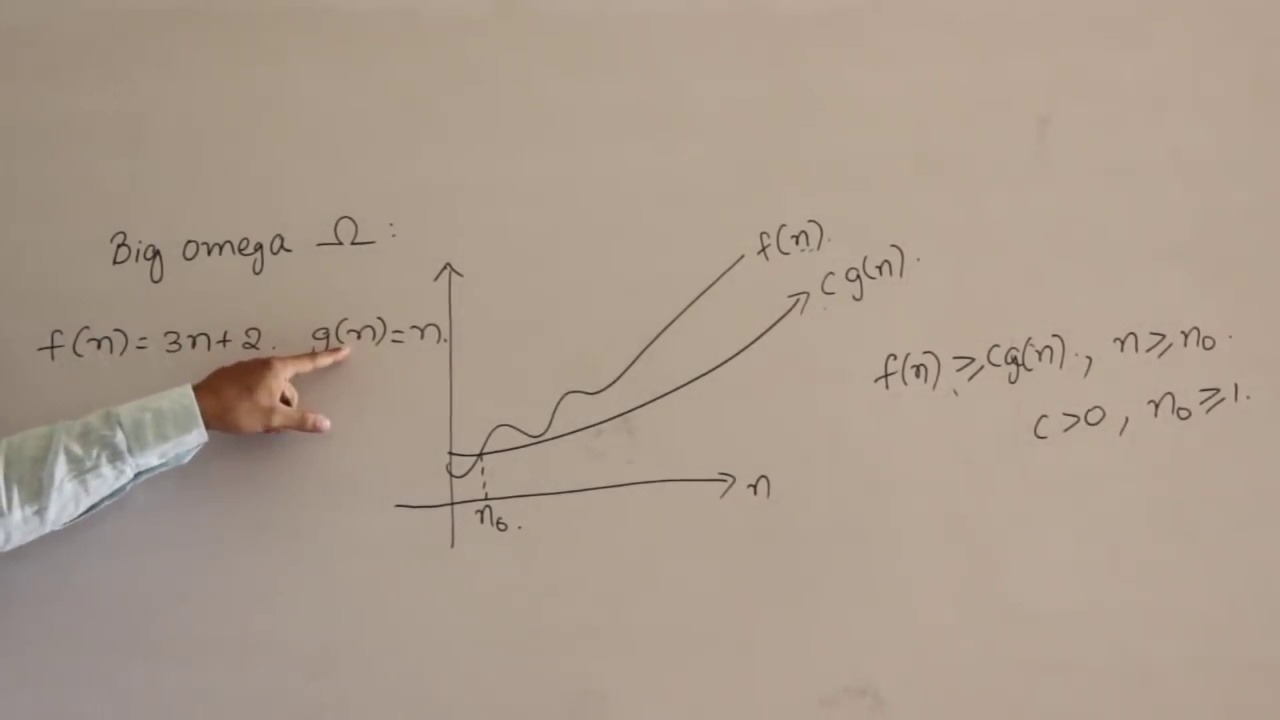 Big omega Ω :
f(n) = 3n+2. g(n) = n.
f(n).
c g(n).
n
n₀.
f(n) ≥ cg(n)., n ≥ n₀.
c > 0, n₀ ≥ 1.